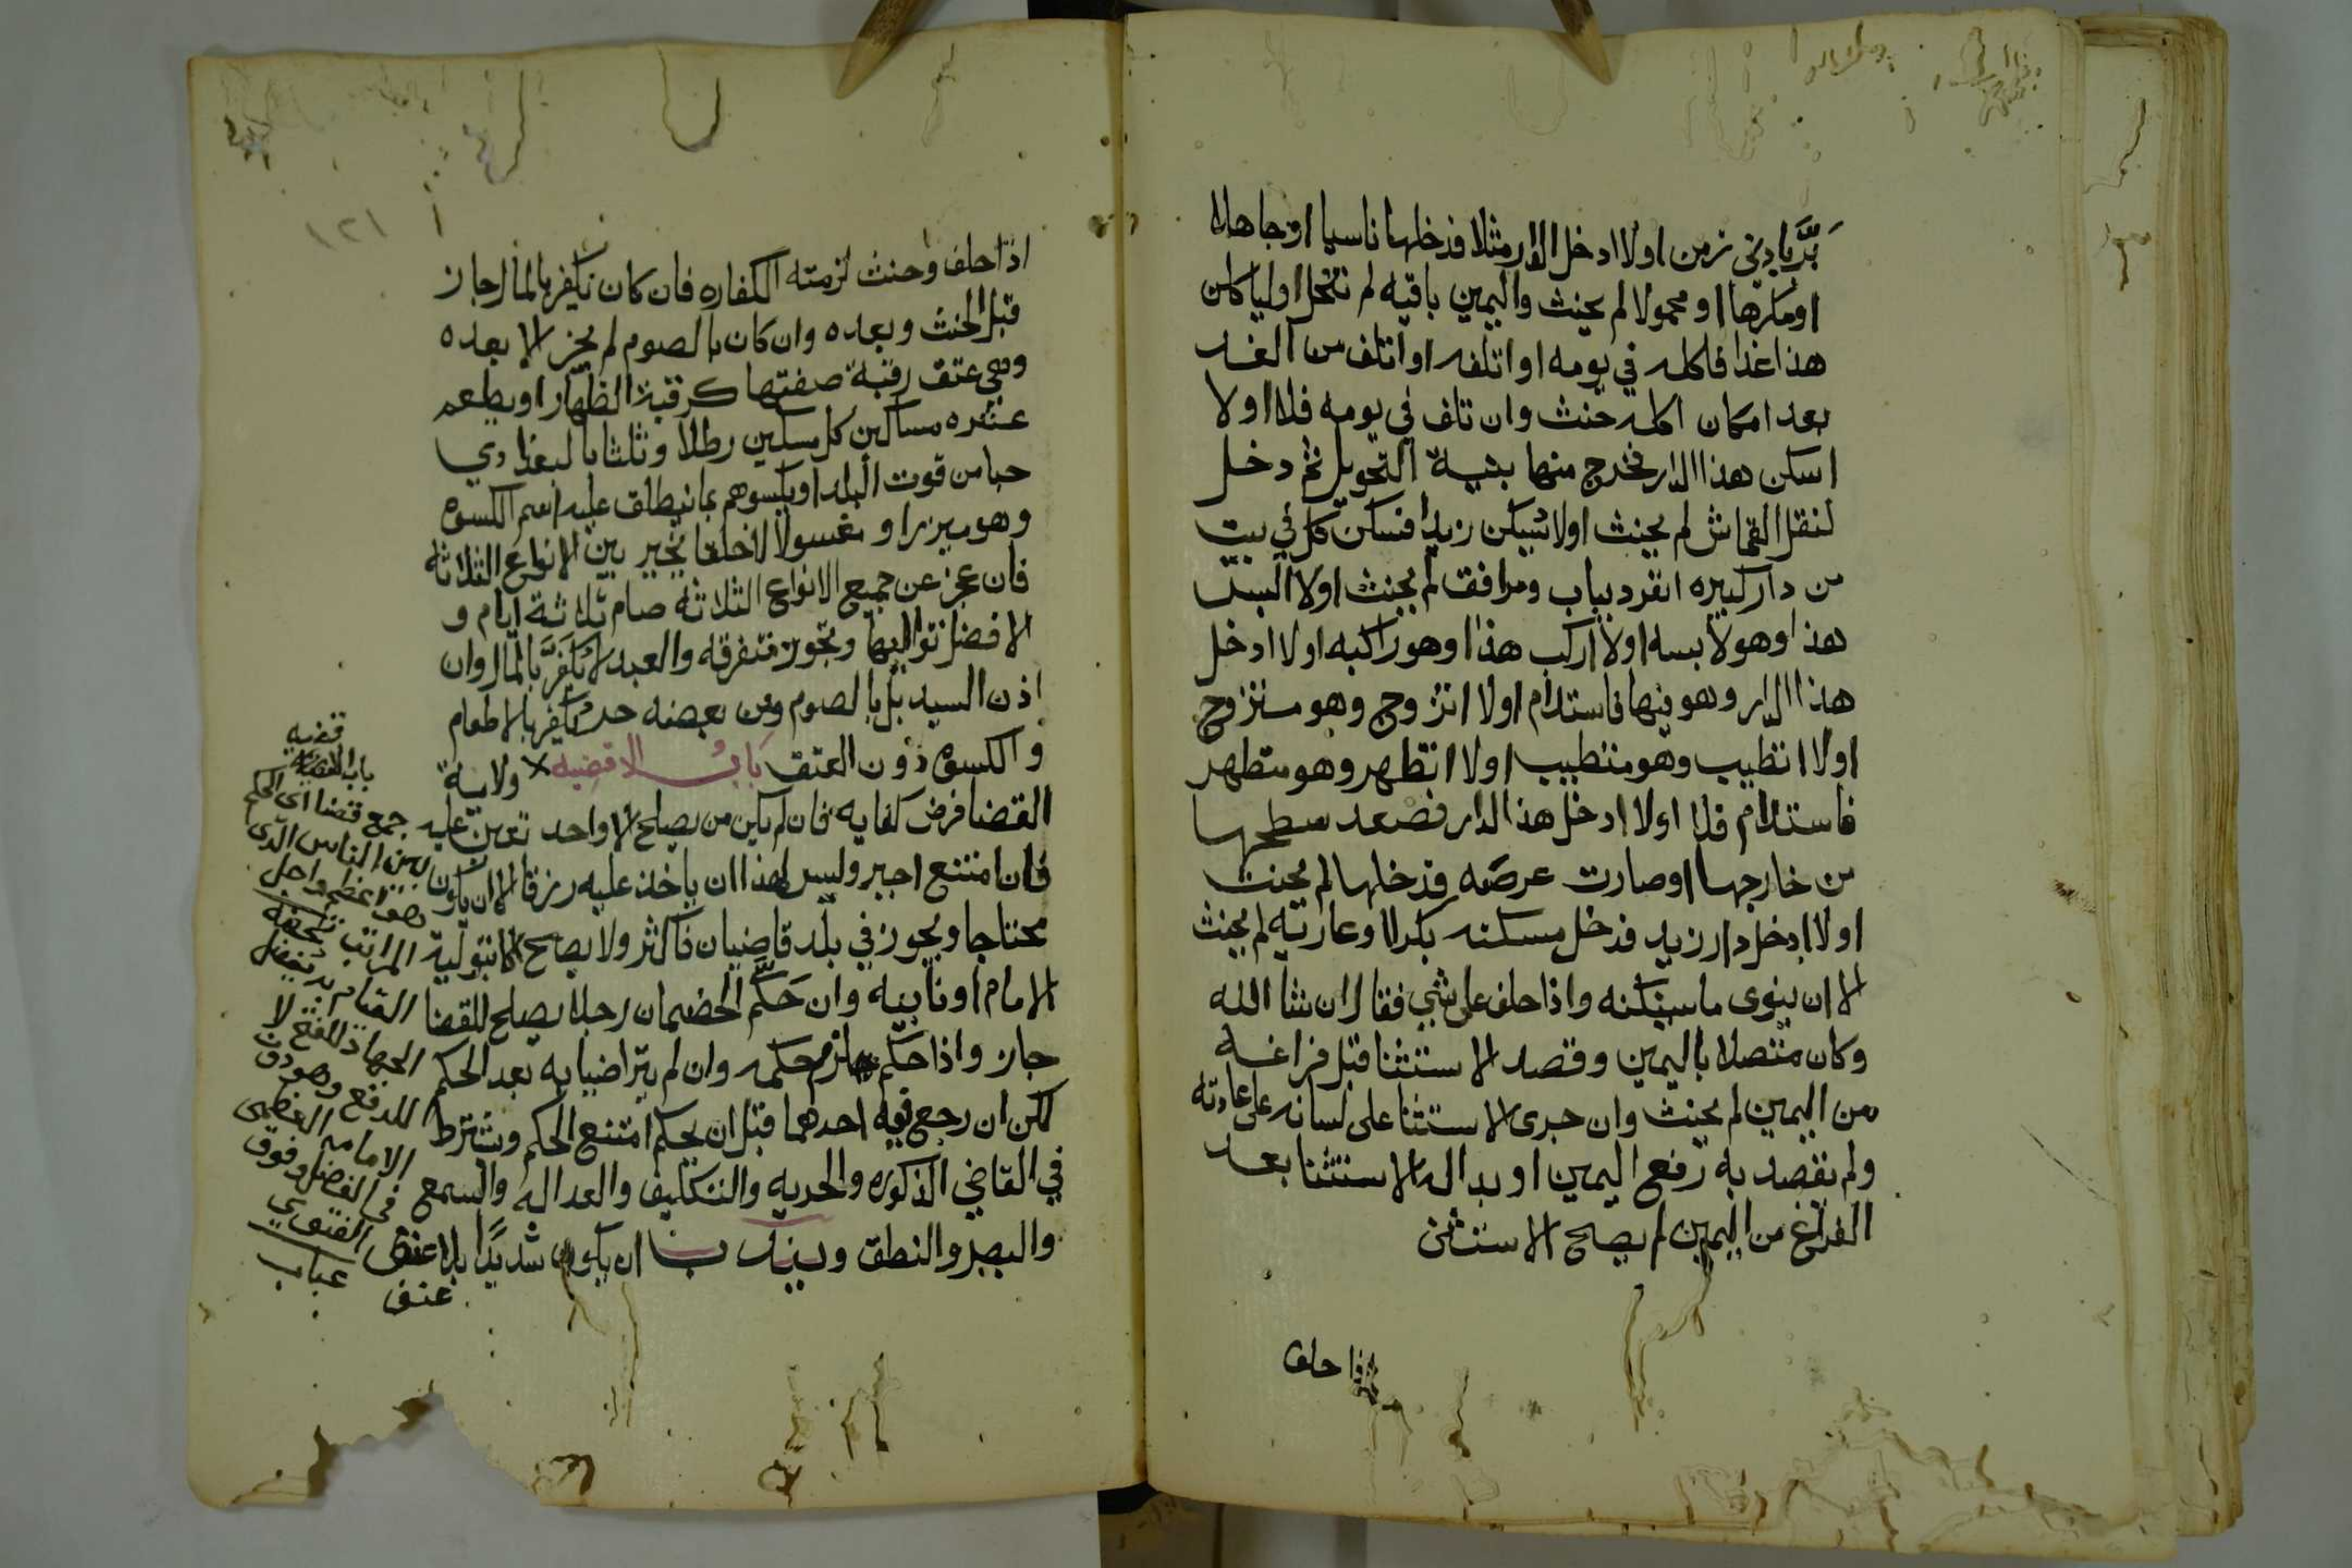 بَرَّ بادني زمن اولا ادخل الدار مثلا فدخلها ناسيا او جاهلا
او مكرها او محمولا لم يحنث واليمين باقيه لم تنحل او لياكلن
هذا غدا فاكله في يومه او اتلفه او اتلف من الغد
بعد امكان اكله حنث وان تلف في يومه فلا اولا
اسكن هذا الدار فخرج منها بنية التحويل ثم دخل
لنقل القماش لم يحنث اولا يسكن زيدا فسكن كل في بيت
من دار كبيره انفرد بباب ومرافق لم يحنث اولا البس
هذا وهو لابسه اولا اركب هذا وهو راكبه اولا ادخل
هذا الدار وهو فيها فاستدام اولا اتزوج وهو متزوج
اولا اتطيب وهو متطيب اولا اتطهر وهو متطهر
فاستدام فلا اولا ادخل هذا الدار فصعد سطحها
من خارجها او صارت عرصه فدخلها لم يحنث
اولا ادخل دار زيد فدخل مسكنه بكرا او عاريه لم يحنث
الا ان ينوى ما يسكنه واذا حلف على شي فقال ان شا الله
وكان متصلا باليمين وقصد الاستثنا قبل فراغه
من اليمين لم يحنث وان جرى الاستثنا على لسانه على عادته
ولم يقصد به رفع اليمين او بدا له الاستثنا بعد
الفراغ من اليمين لم يصح الاستثنى
اذا حلف
١٢١
اذا حلف وحنث لزمته الكفاره فان كان تكفير بالمال جاز
قبل الحنث وبعده وان كان بالصوم لم يجز الا بعده
وهي عتق رقبة صفتها كرقبة الظهار او يطعم
عشره مساكين كل مسكين رطلا وثلثا بالبغدادي
حبا من قوت البلد او يكسوهم بما ينطلق عليه اسم الكسوه
وهو ميزرا او مغسولا لا خلقا يخير بين الانواع الثلاثه
فان عجز عن جميع الانواع الثلاثه صام ثلاثة ايام و
الافضل تواليها وتجوز متفرقه والعبد لا يكفر بالمال وان
اذن السيد بل بالصوم ومن بعضه حر يكفر بالاطعام
والكسوه دون العتق باب الاقضيه ولاية
القضا فرض كفايه فان لم يكن من يصلح الا واحد تعين عليه
فان امتنع اجبر وليس لهذا ان ياخذ عليه رزقا الا ان يكون
محتاجا ويجوز في بلد قاضيان فاكثر ولا يصح الا بتولية
الامام او نايبه وان حكّم الخصمان رجلا يصلح للقضا
جاز واذا حكم لزم حكمه وان لم يتراضيا به بعد الحكم
لكن ان رجع فيه احدهما قبل ان يحكم امتنع الحكم ويشترط
في القاضي الذكوره والحريه والتكليف والعداله والسمع
والبصر والنطق ويندب ان يكون شديدا بلا عنف
عنف
قضيه
باب الاقضيه
جمع قضا اى الحكم
بين الناس الذى
هو اعظم واجل
المراتب
القيام به يفضل
الجهاد
للدفع وهو دون
الامامه العظمى
فى الفضل وفوق
الفتوي
عباب